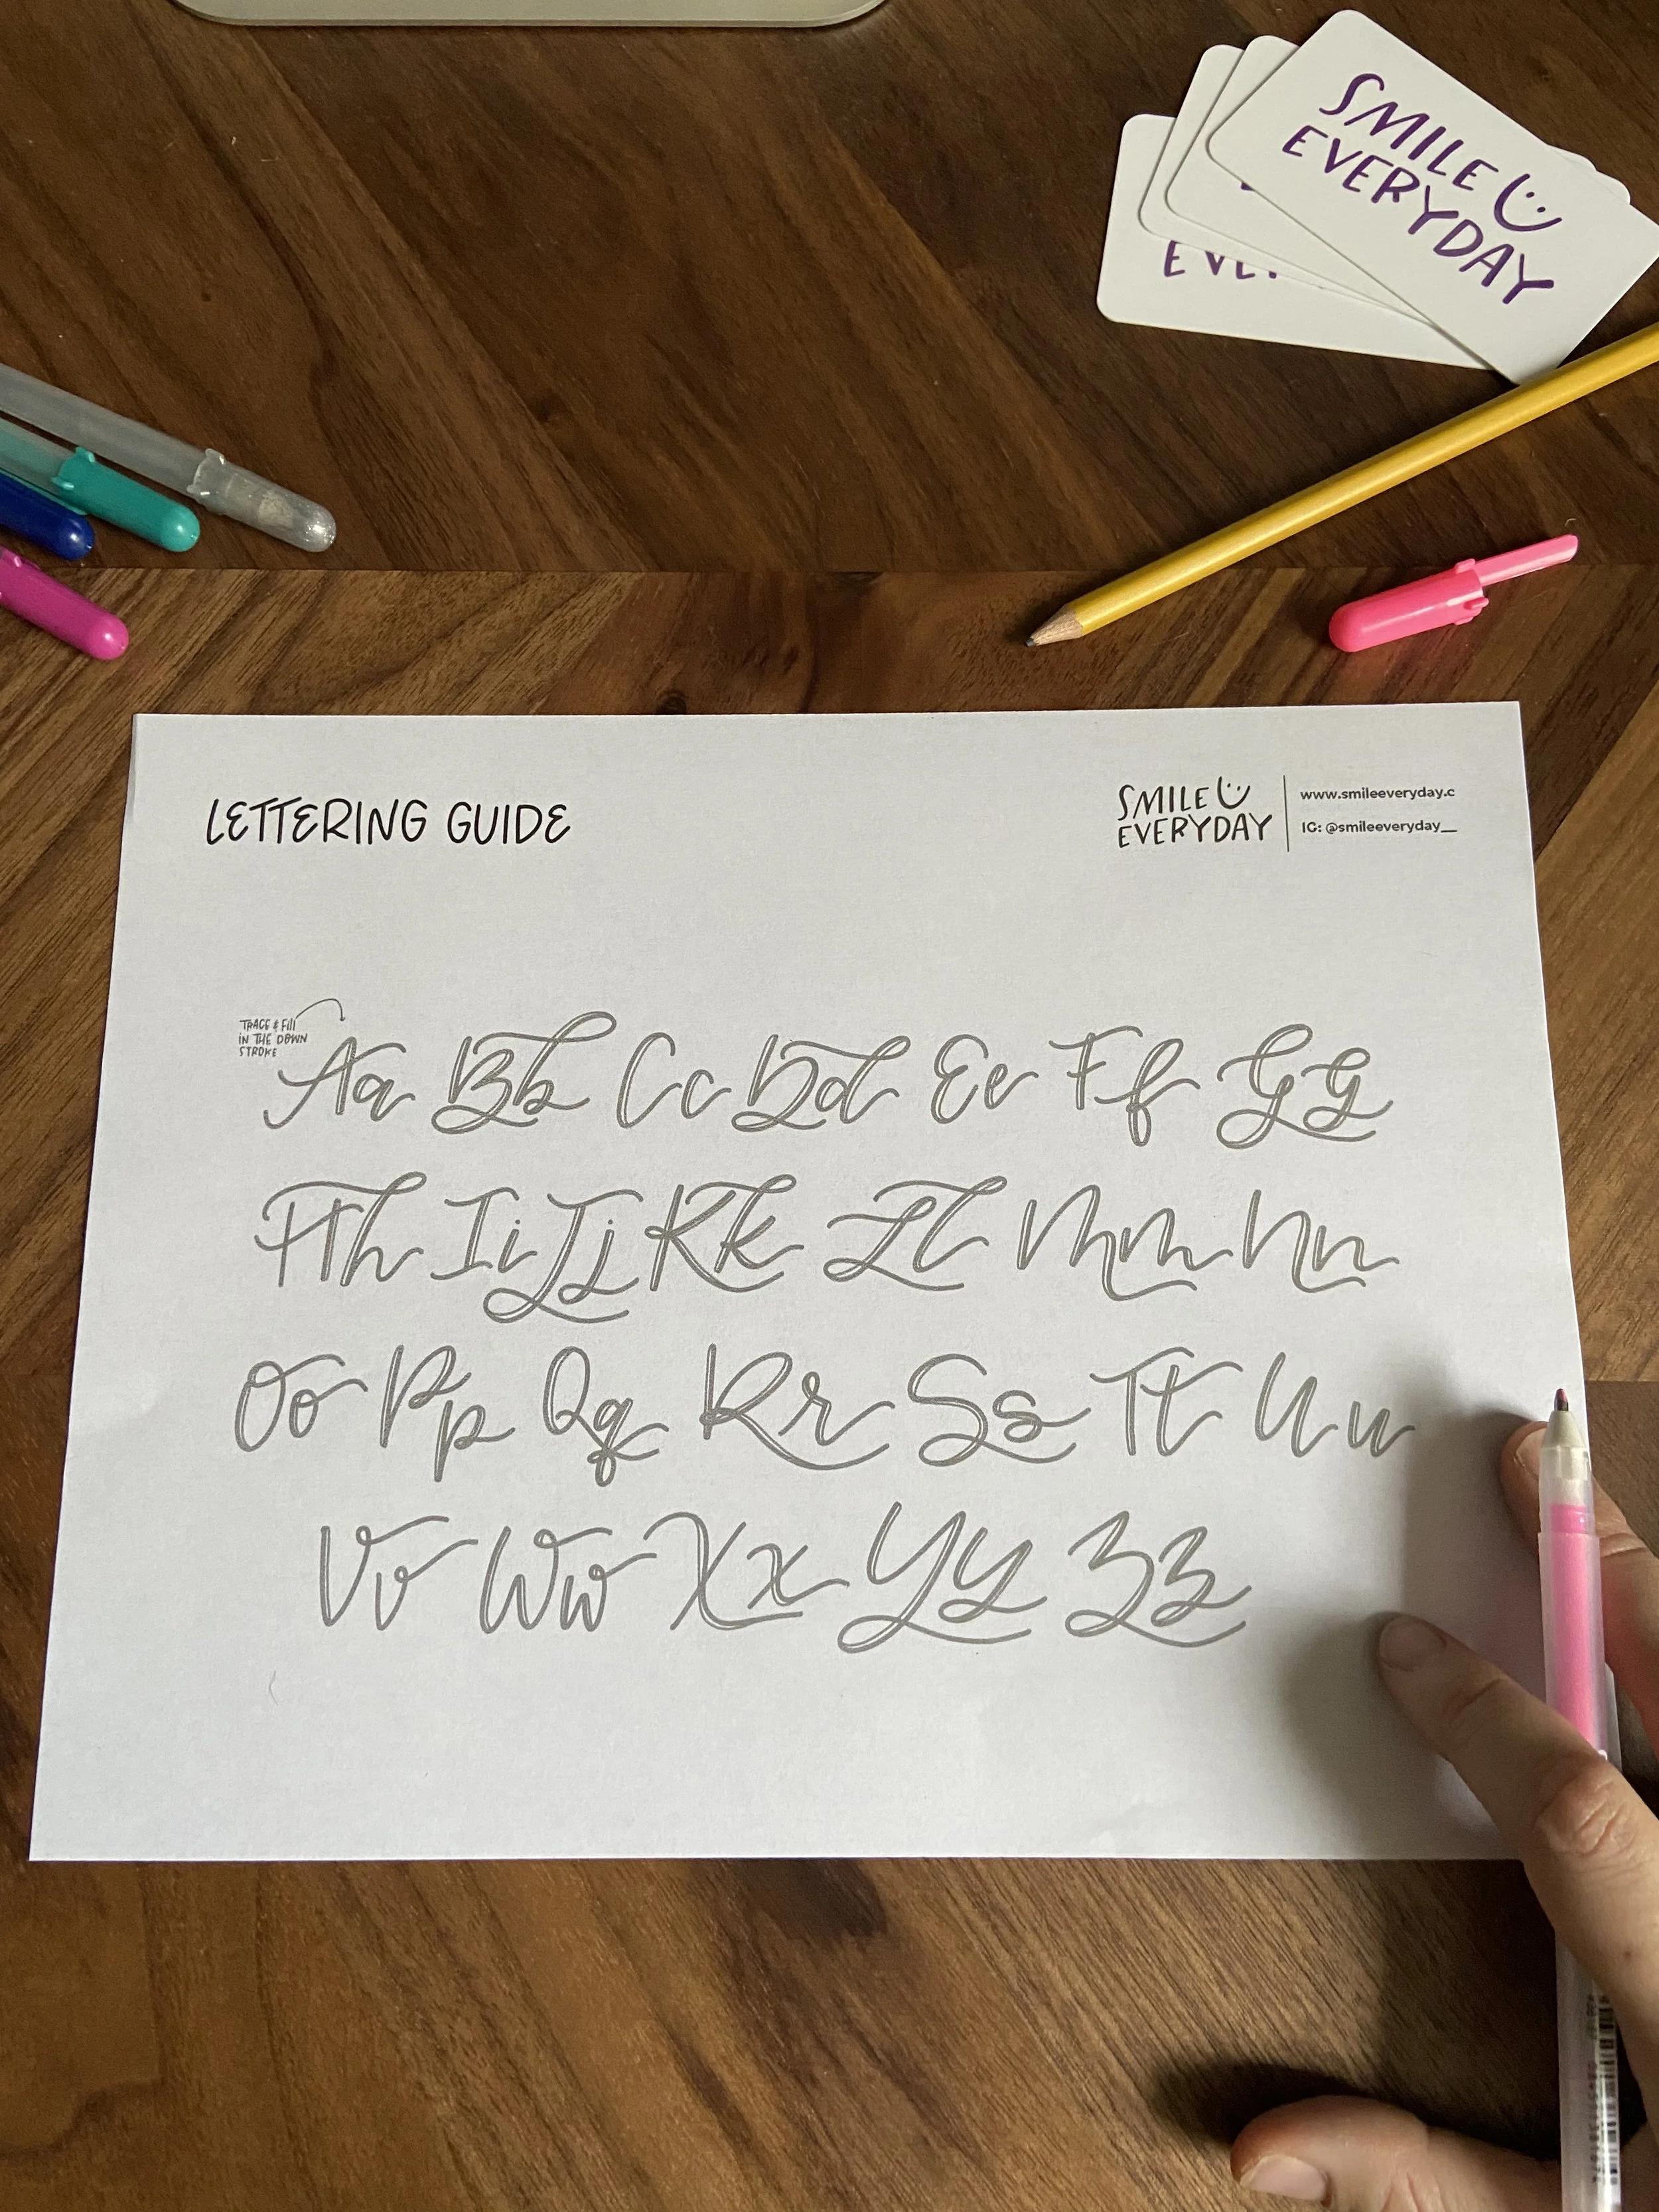 SMILE
EVERYDAY
LETTERING GUIDE
SMILE
EVERYDAY
www.smileeveryday.c
IG: @smileeveryday__
TRACE & FILL
IN THE DOWN
STROKE
Aa Bb Cc Dd Ee Ff Gg
Hh Ii Jj Kk Ll Mm Nn
Oo Pp Qq Rr Ss Tt Uu
Vv Ww Xx Yy Zz